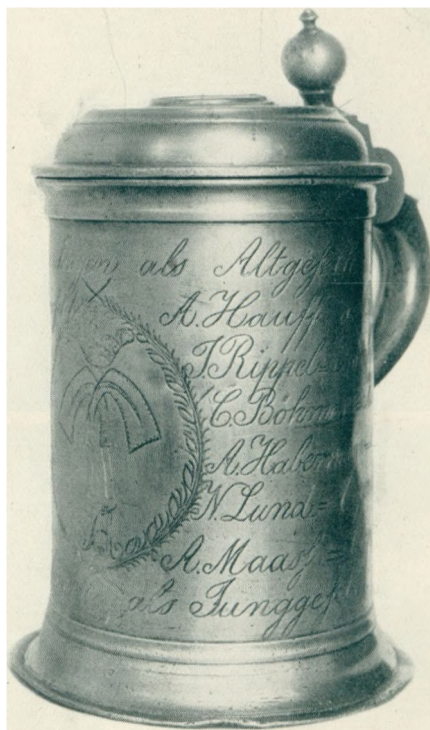 als Altgesell
A. Hauff
J. Rippel
C. Böhm
A. Haber
N. Lund=
A. Maass=
als Junggese